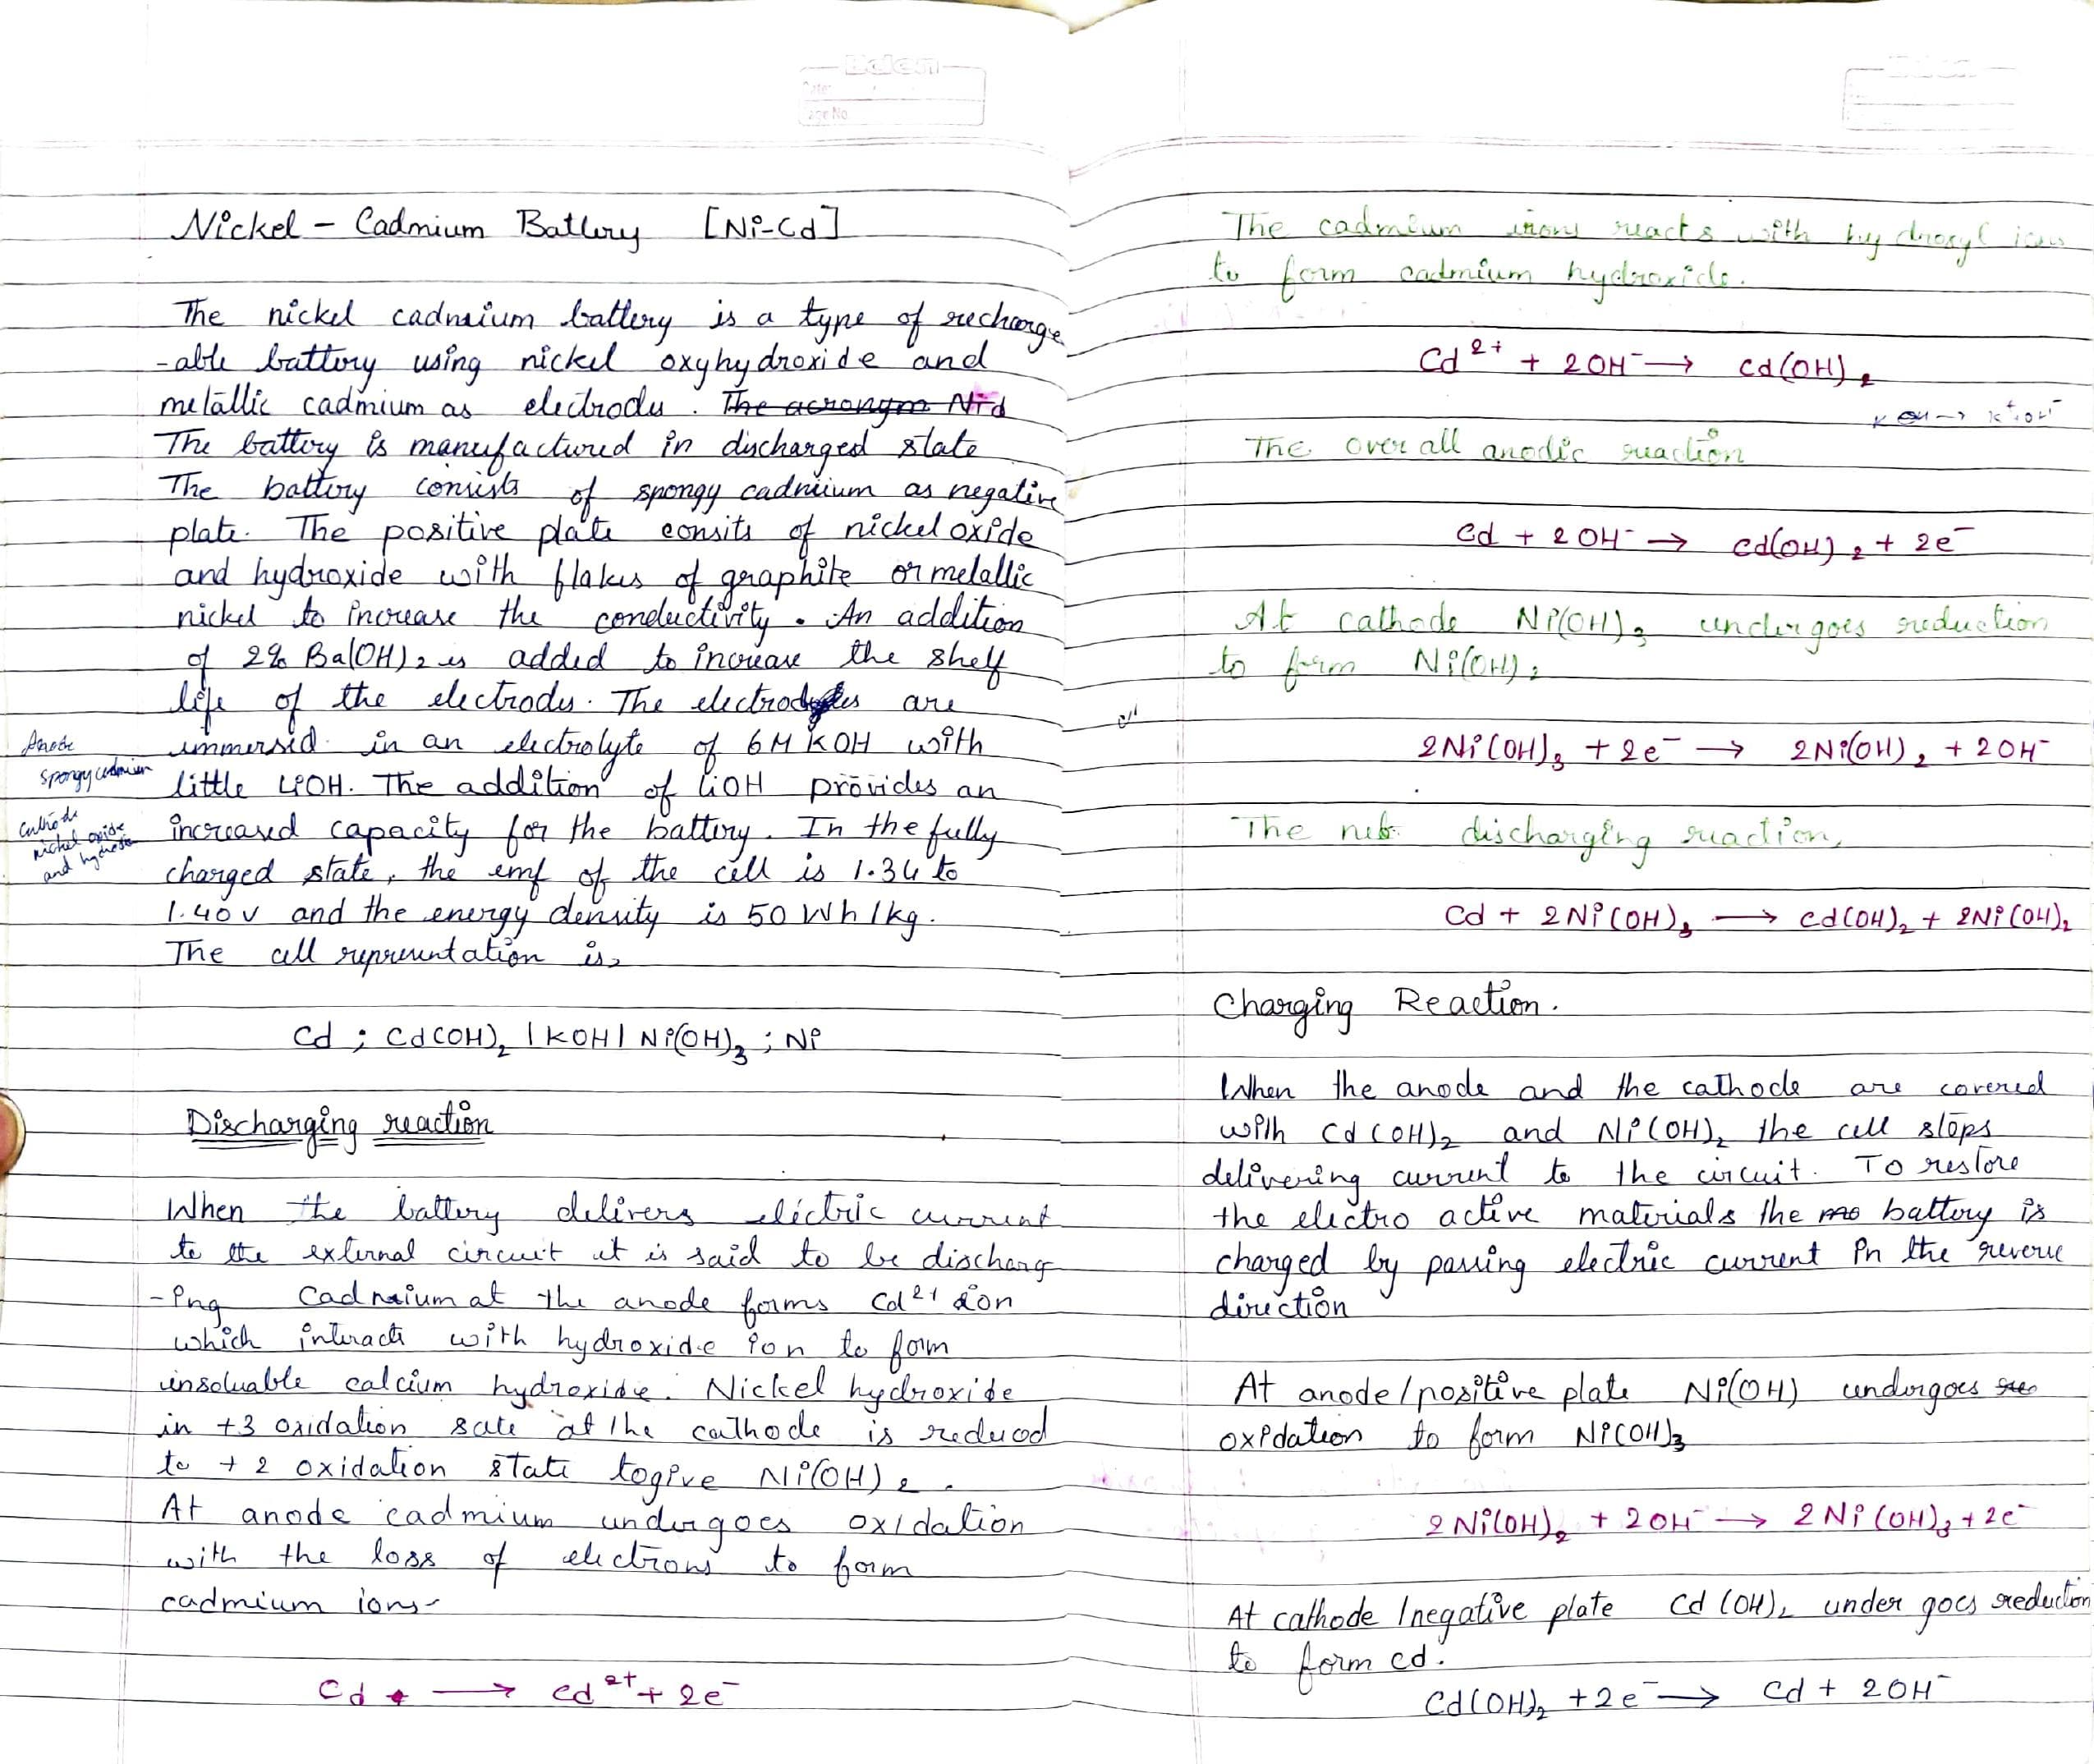 Nickel - Cadmium Battery [Ni-Cd]
The nickel cadmium battery is a type of recharge
-able battery using nickel oxyhydroxide and
metallic cadmium as electrodes. The acronym
The battery is manufactured in discharged state
The battery consists of spongy cadmium as negative
plate. The positive plate consits of nickel oxide
and hydroxide with flakes of graphite or metallic
nickel to increase the conductivity. An addition
of 2% Ba(OH)₂ is added to increase the shelf
life of the electrodes. The electrodes are
immersed in an electrolyte of 6M KOH with
little LiOH. The addition of LiOH provides an
increased capacity for the battery. In the fully
charged state, the emf of the cell is 1.34 to
1.40 v and the energy density is 50 Wh/kg.
The cell representation is,
Anode
spongy cadmium
Cathode
nickel oxide
and hydroxide
Cd ; Cd(OH)₂ | KOH | Ni(OH)₃ ; Ni
Discharging reaction
When the battery delivers electric current
to the external circuit it is said to be discharg
-ing Cadmium at the anode forms Cd²⁺ ion
which interacts with hydroxide ion to form
insoluable calcium hydroxide. Nickel hydroxide
in +3 oxidation sate at the cathode is reduced
to +2 oxidation state to give Ni(OH)₂.
At anode cadmium undergoes oxidation
with the loss of electrons to form
cadmium ions
Cd → Cd²⁺ + 2e⁻
The cadmium reacts with hydroxyl ions
to form cadmium hydroxide.
Cd²⁺ + 2OH⁻ → Cd(OH)₂
KOH → K⁺ + OH⁻
The over all anodic reaction
Cd + 2OH⁻ → Cd(OH)₂ + 2e⁻
At cathode Ni(OH)₃ undergoes reduction
to form Ni(OH)₂
2Ni(OH)₃ + 2e⁻ → 2Ni(OH)₂ + 2OH⁻
The net discharging reaction,
Cd + 2Ni(OH)₃ → Cd(OH)₂ + 2Ni(OH)₂
Charging Reaction.
When the anode and the cathode are covered
with Cd(OH)₂ and Ni(OH)₂ the cell stops
delivering current to the circuit. To restore
the electro active materials the battery is
charged by passing electric current in the reverse
direction
At anode/positive plate Ni(OH) undergoes
oxidation to form Ni(OH)₃
2Ni(OH)₂ + 2OH⁻ → 2Ni(OH)₃ + 2e⁻
At cathode/negative plate Cd(OH)₂ under goes reduction
to form cd.
Cd(OH)₂ + 2e⁻ → Cd + 2OH⁻